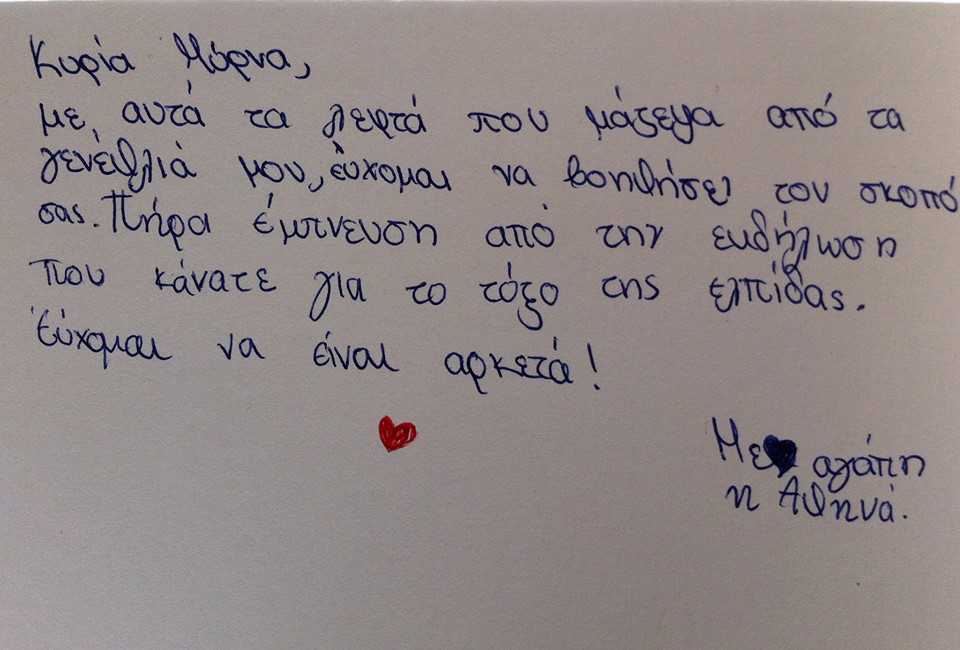 Κυρία Μόρνα,
με αυτά τα λεφτά που μάζεψα από τα
γενέθλιά μου, εύχομαι να βοηθήσει τον σκοπό
σας. Πήρα έμπνευση από την εκδήλωση
που κάνατε για το τόξο της ελπίδας.
Εύχομαι να είναι αρκετά!
Με αγάπη
η Αθηνά.